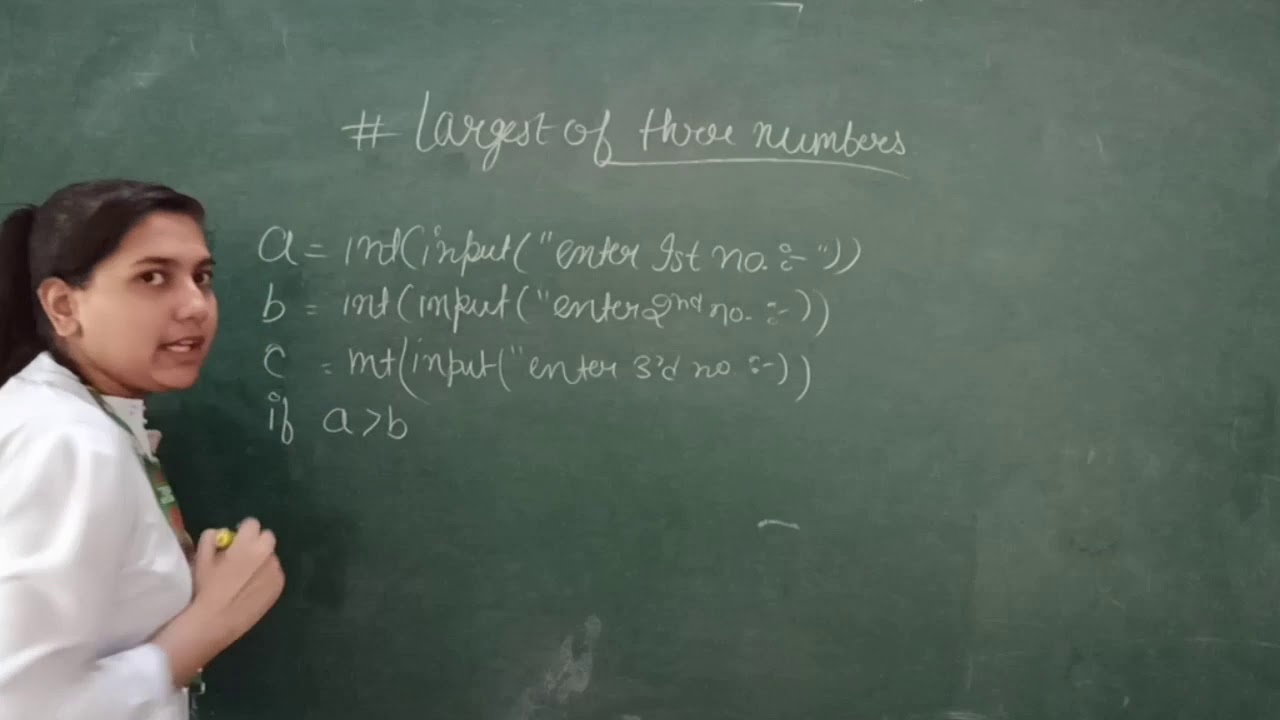 # Largest of three numbers
a = int(input("enter 1st no. :- "))
b = int(input("enter 2nd no. :- ))
c = int(input("enter 3rd no. :-))
if a>b